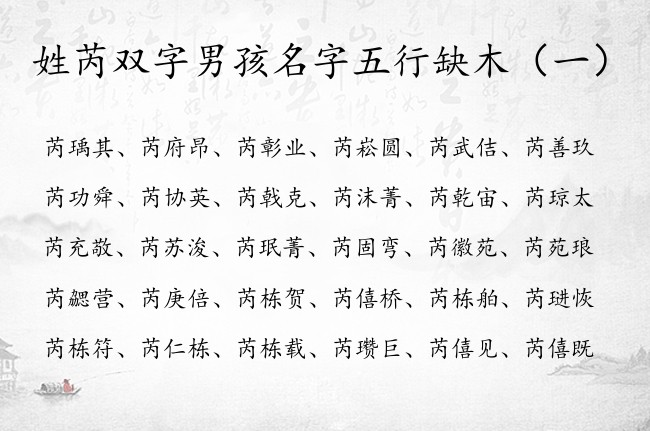 姓芮双字男孩名字五行缺木（一）
芮瑀其、芮府昂、芮彰业、芮崧圆、芮武佶、芮善玖
芮功舜、芮协英、芮戟克、芮沫菁、芮乾宙、芮琼太
芮充敬、芮苏浚、芮珉菁、芮固弯、芮徽苑、芮苑琅
芮勰营、芮庚倍、芮栋贺、芮僖桥、芮栋舶、芮琎恢
芮栋符、芮仁栋、芮栋载、芮瓒巨、芮僖见、芮僖既